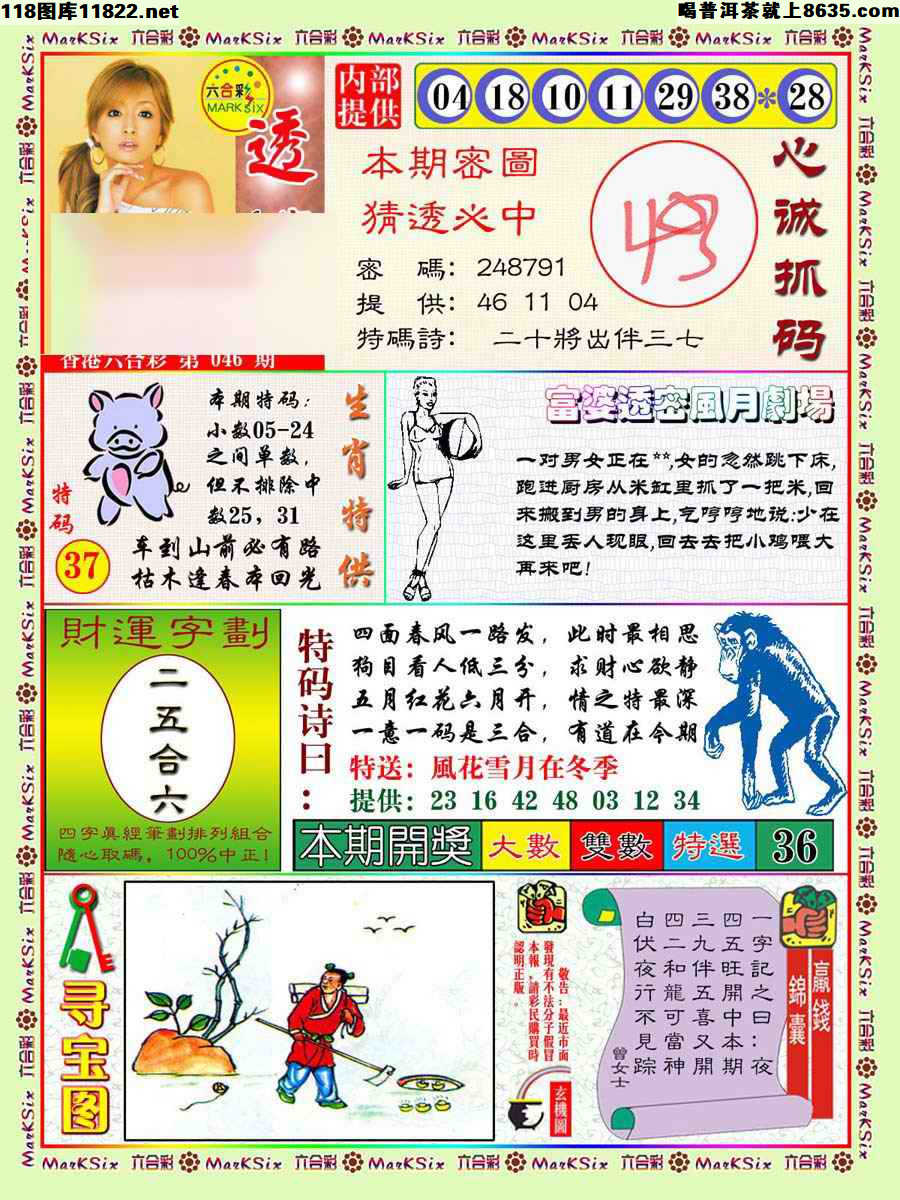 118图库11822.net
喝普洱茶就上8635.com
MarKSix 六合彩 MarKSix 六合彩 MarKSix 六合彩 MarKSix 六合彩 MarKSix 六合彩
六合彩
MARK SIX
透
内部
提供
04 18 10 11 29 38 * 28
本期密圖
猜透必中
密 碼: 248791
提 供: 46 11 04
特碼詩: 二十將出伴三七
心诚抓码
香港六合彩 第 046 期
本期特码:
小数05-24
之间单数,
但不排除中
数25, 31
特码
37
车到山前必有路
枯木逢春本回光
生肖特供
富婆透密風月劇場
一对男女正在**,女的忽然跳下床,
跑进厨房从米缸里抓了一把米,回
来搬到男的身上,气哼哼地说:少在
这里丢人现眼,回去去把小鸡喂大
再来吧!
財運字劃
二五合六
四字眞經筆劃排列組合
隨心取碼, 100%中正!
特码诗曰:
四面春风一路发, 此时最相思
狗目看人低三分, 求财心欲静
五月红花六月开, 情之特最深
一意一码是三合, 有道在今期
特送: 風花雪月在冬季
提供: 23 16 42 48 03 12 34
本期開獎 大數 雙數 特選 36
寻宝图
敬告:最近市面
發現有不法分子假冒
本報,請彩民購買時
認明正版。
玄機圖
一字記之曰:夜
四五旺開中本期
三九伴五喜又開
四二和龍可當神
白伏夜行不見踪
曾女士
贏錢
錦囊
MarKSix 六合彩 MarKSix 六合彩 MarKSix 六合彩 MarKSix 六合彩 MarKSix 六合彩